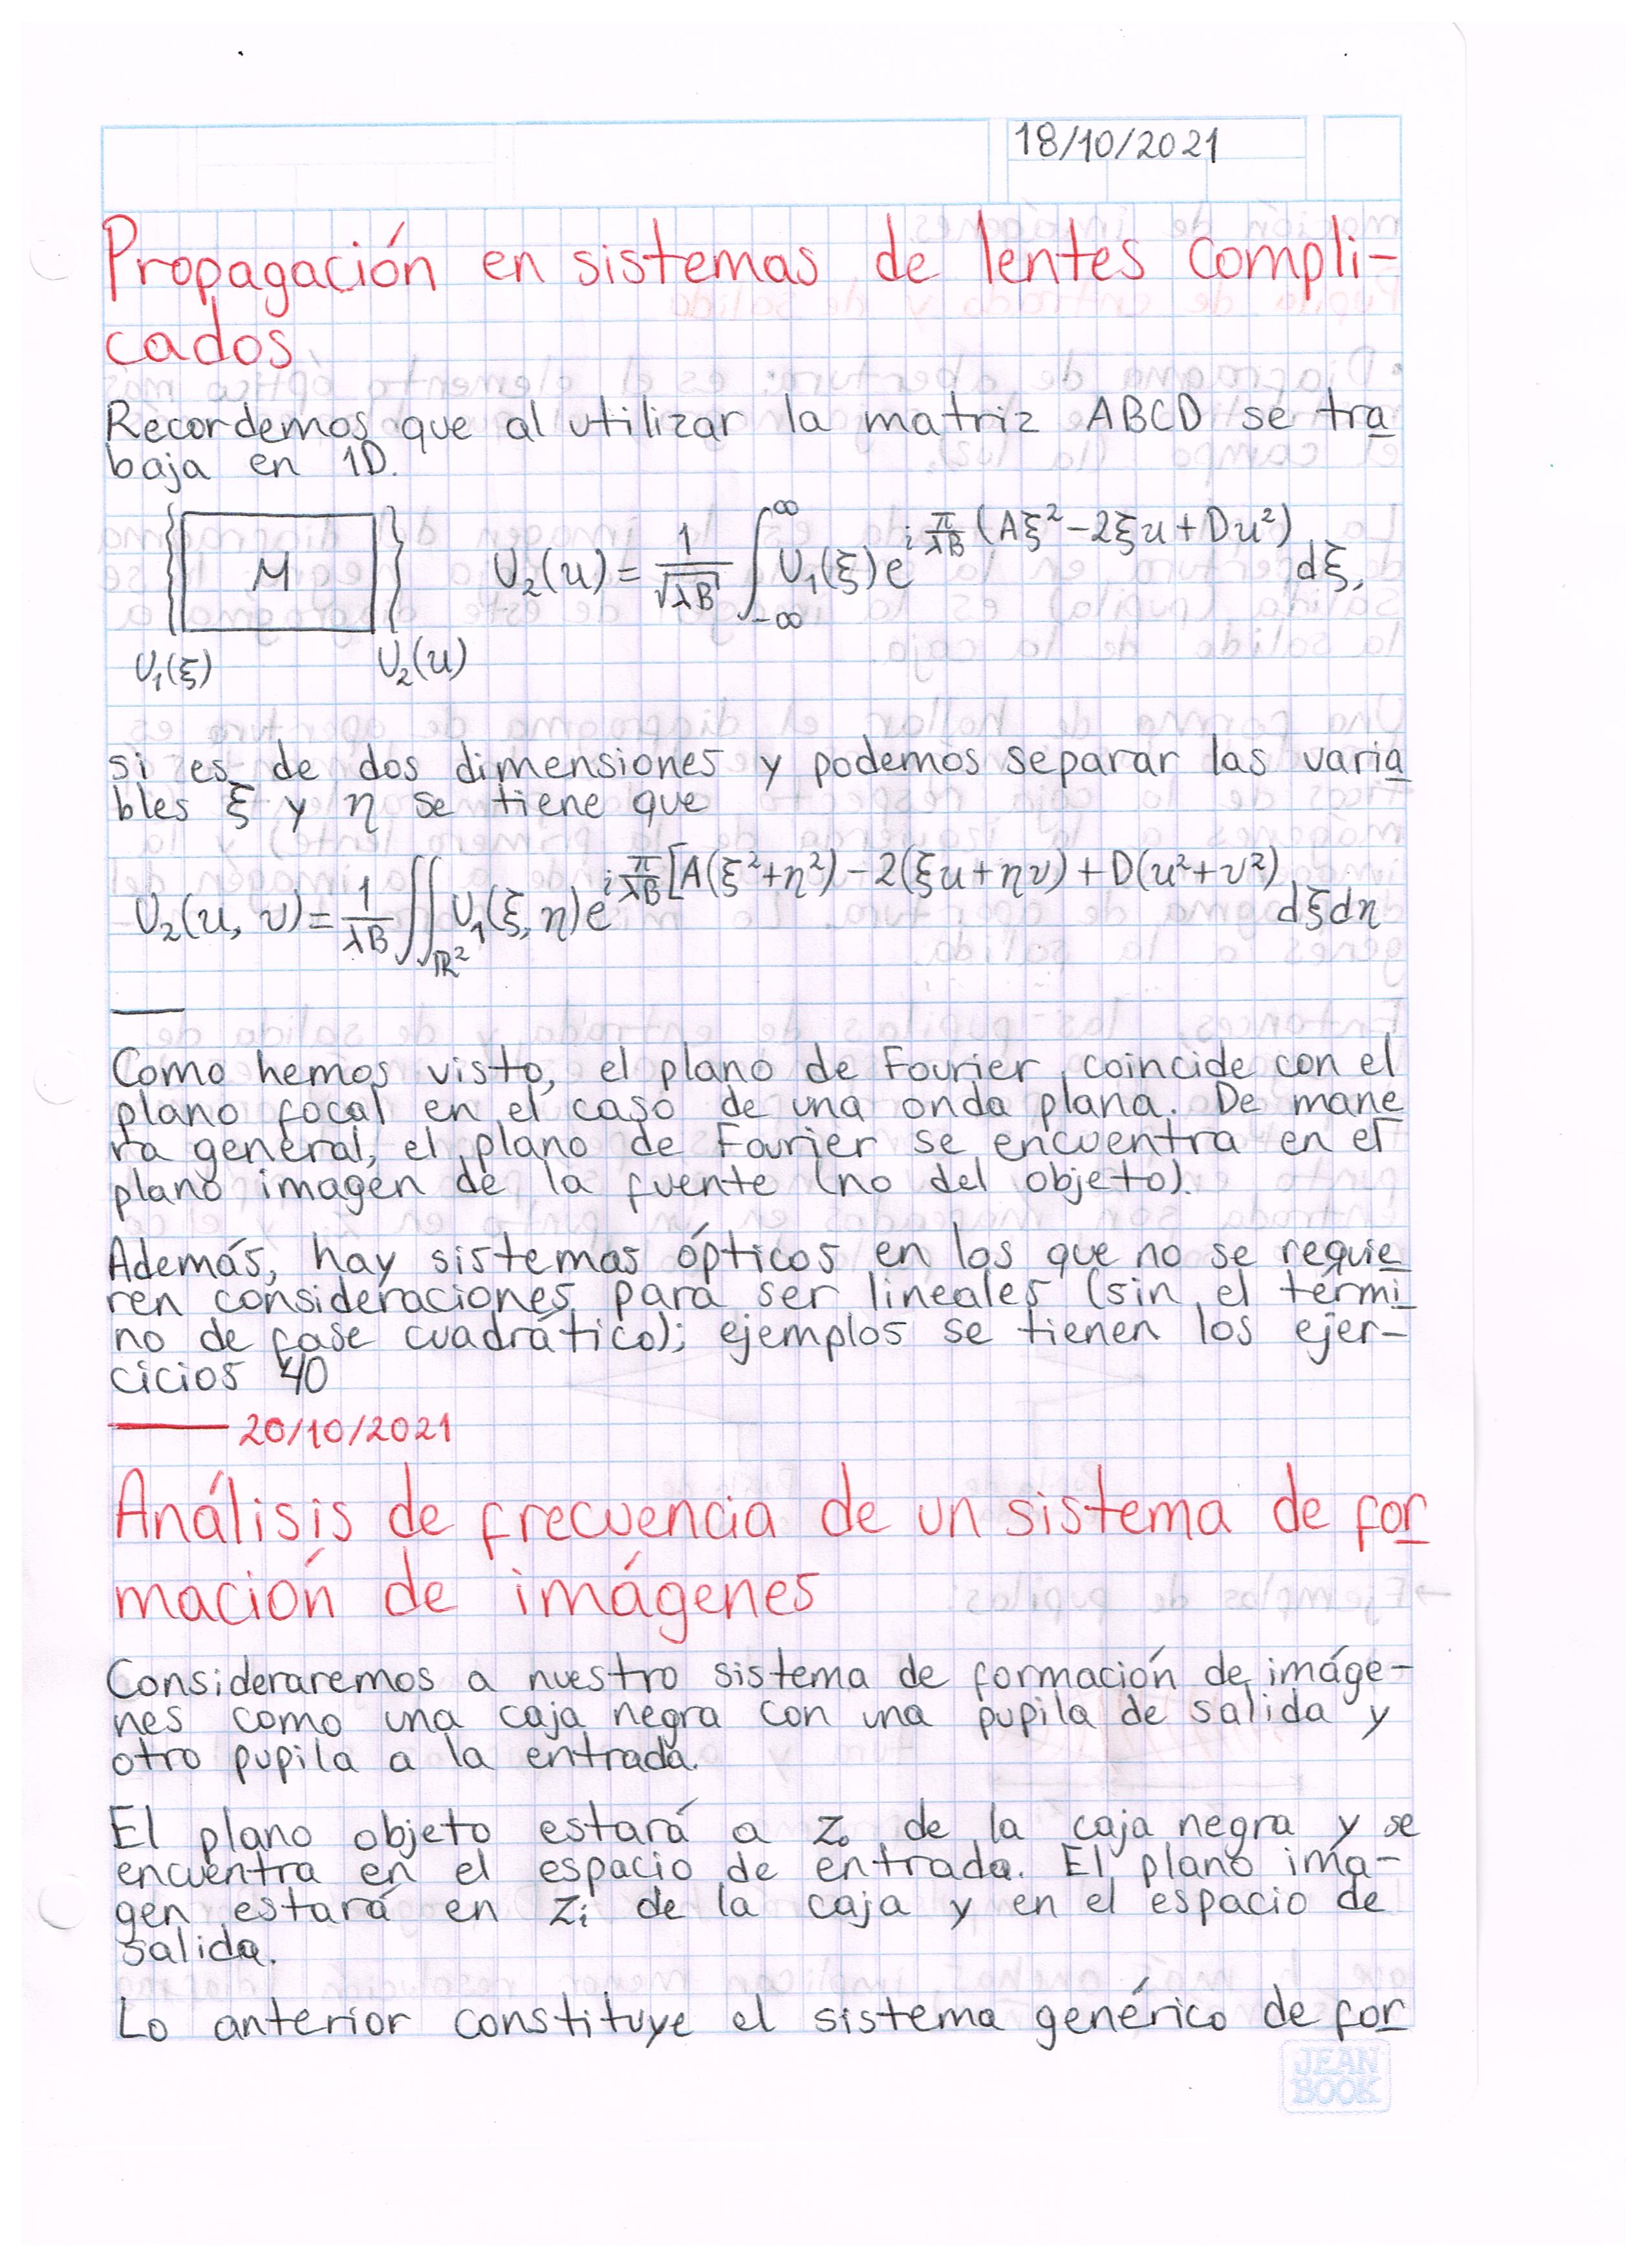 18/10/2021
Propagación en sistemas de lentes compli-
cados
Recordemos que al utilizar la matriz ABCD se tra
baja en 1D.
M
U₂(u) = 1/√λB ∫_{-∞}^{∞} U₁(ξ) e^{i π/λB (Aξ² - 2ξu + Du²)} dξ,
U₁(ξ) U₂(u)
si es de dos dimensiones y podemos separar las varia
bles ξ y η se tiene que
U₂(u, v) = 1/λB ∬_{ℝ²} U₁(ξ, η) e^{i π/λB [A(ξ²+η²) - 2(ξu+ηv) + D(u²+v²)} dξdη
Como hemos visto, el plano de Fourier coincide con el
plano focal en el caso de una onda plana. De mane
ra general, el plano de Fourier se encuentra en el
plano imagen de la fuente (no del objeto).
Además, hay sistemas ópticos en los que no se requie
ren consideraciones para ser lineales (sin el térmi
no de fase cuadrático); ejemplos se tienen los ejer-
cicios 40
20/10/2021
Análisis de frecuencia de un sistema de for
mación de imágenes
Consideraremos a nuestro sistema de formación de imáge-
nes como una caja negra con una pupila de salida y
otro pupila a la entrada.
El plano objeto estará a Z₀ de la caja negra y se
encuentra en el espacio de entrada. El plano ima-
gen estará en Zᵢ de la caja y en el espacio de
salida.
Lo anterior constituye el sistema genérico de for
JEAN
BOOK